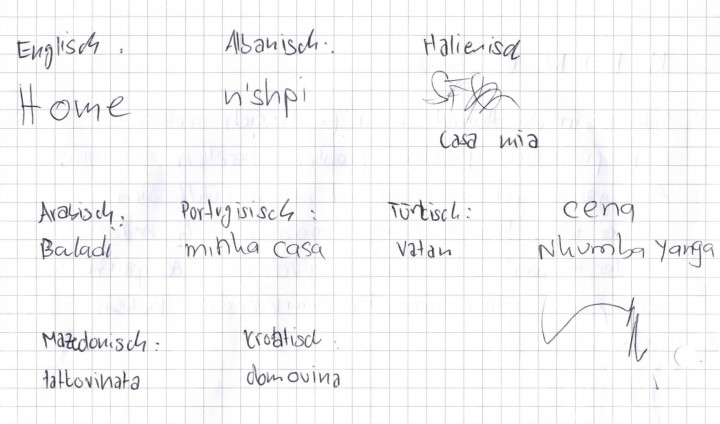 Englisch: Albanisch: Italienisch
Home n'shpi
casa mia
Arabisch: Portugisisch: Türkisch: cena
Baladi minha casa vatan Nhumba yanga
Mazedonisch: Kroatisch
tattovinata domovina